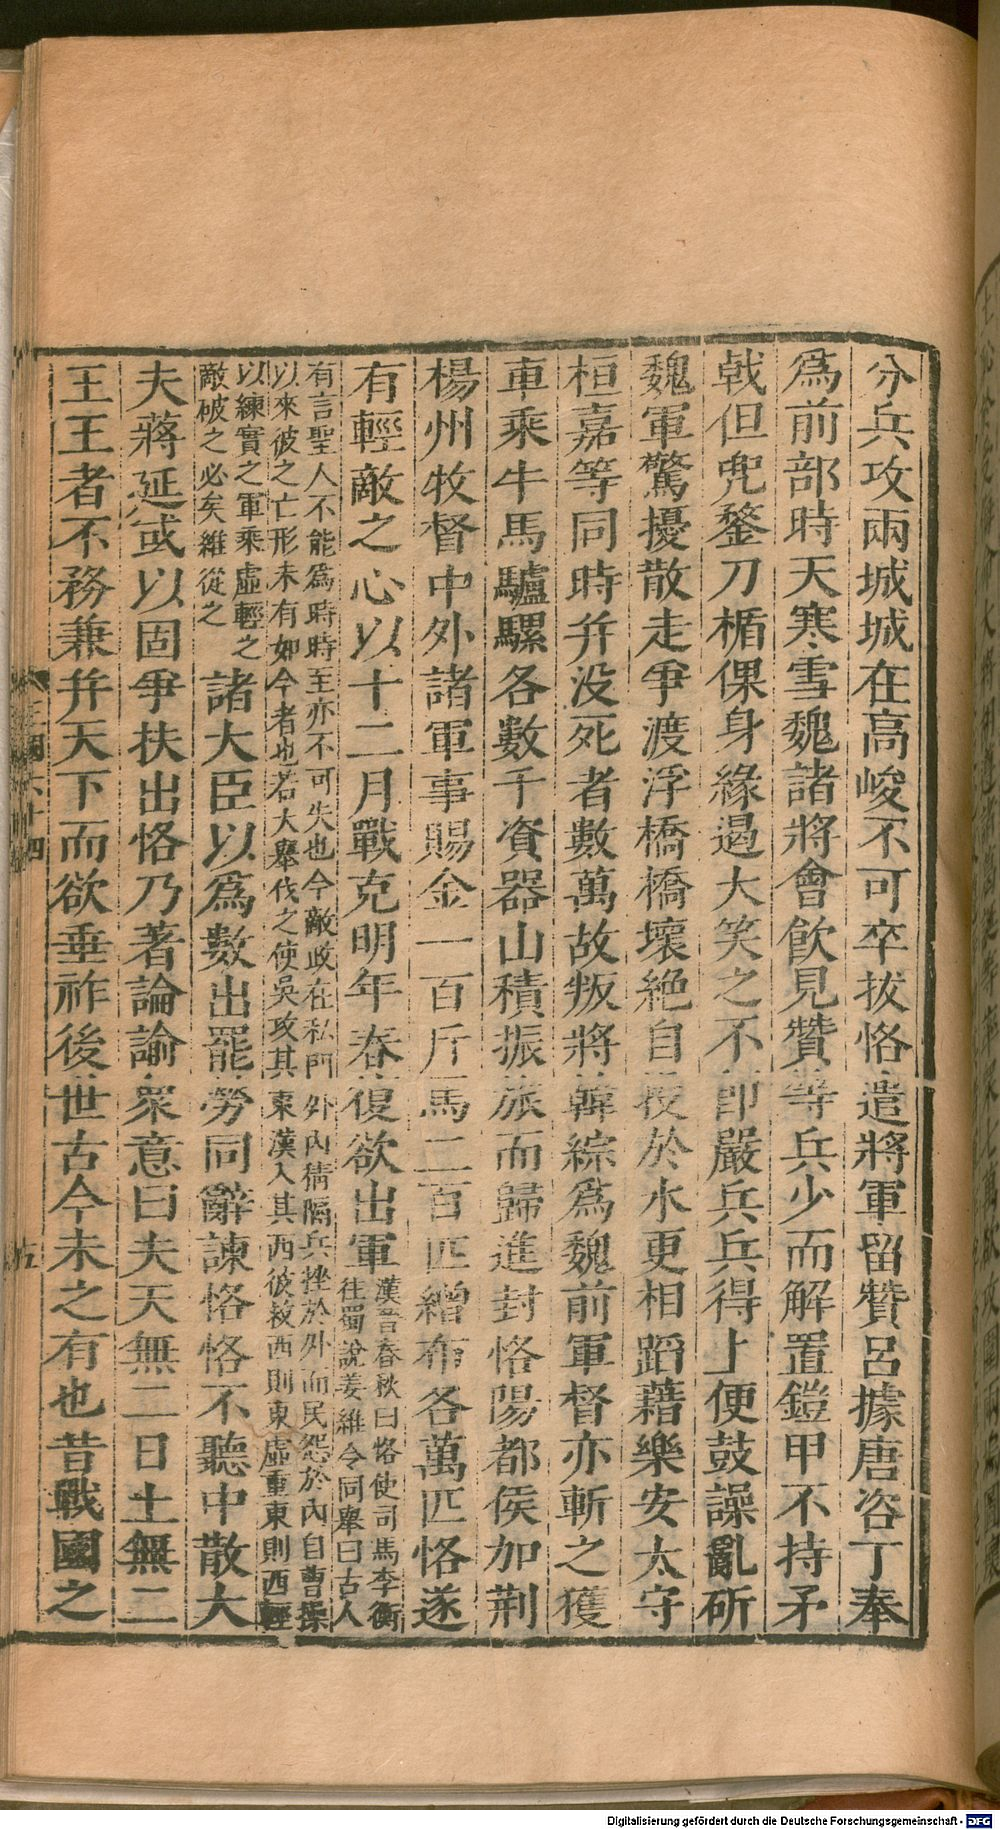 分兵攻兩城城在高峻不可卒拔恪遣將軍留贊呂據唐咨丁奉
爲前部時天寒雪魏諸將會飮見贊等兵少而解置鎧甲不持矛
戟但兜鍪刀楯倮身緣遏大笑之不卽嚴兵兵得上便鼓譟亂斫
魏軍驚擾散走爭渡浮橋橋壞絕自投於水更相蹈藉樂安太守
桓嘉等同時并没死者數萬故叛將韓綜爲魏前軍督亦斬之獲
車乘牛馬驢騾各數千資器山積振旅而歸進封恪陽都侯加荆
楊州牧督中外諸軍事賜金一百斤馬二百匹繒布各萬匹恪遂
有輕敵之心以十二月戰克明年春復欲出軍
漢晉春秋曰恪使司馬李衡
往蜀說姜維令同舉曰古人
有言聖人不能爲時時至亦不可失也今敵政在私門外內猜隔兵挫於外而民怨於內自曹操
以來彼之亡形未有如今者也若大舉伐之使吳攻其東漢入其西彼救西則東虛重東則西輕
以練實之軍乘虛輕之
敵破之必矣維從之
諸大臣以爲數出罷勞同辭諫恪恪不聽中散大
夫蔣延或以固爭扶出恪乃著論諭衆意曰夫天無二日土無二
王王者不務兼并天下而欲垂祚後世古今未之有也昔戰國之
三國六十四
五
Digitalisierung gefördert durch die Deutsche Forschungsgemeinschaft - DFG